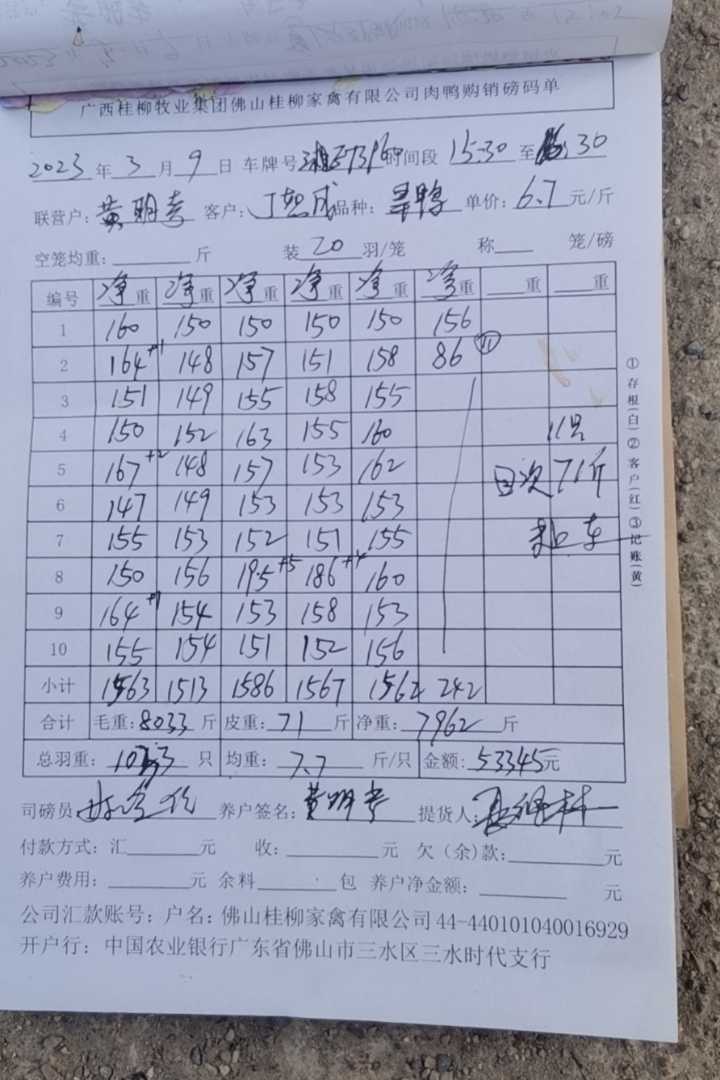 广西桂柳牧业集团佛山桂柳家禽有限公司肉鸭购销磅码单
2023年3月9日 车牌号 时间段 15:30 至 :30
联营户: 黄明 客户: 丁 成 品种: 鸭 单价: 6.7 元/斤
空笼均重: 斤 装 20 羽/笼 称 笼/磅
编号 净重 净重 净重 净重 净重 净重 重 重
1 160 150 150 150 150 156
2 164+1 148 157 151 158 86 (11)
3 151 149 155 158 155
4 150 152 163 155 160 11只
5 167+2 148 157 153 162 71斤
6 147 149 153 153 153
7 155 153 152 151 155 车
8 150 156 195+5 186+4 160
9 164+1 154 153 158 153
10 155 154 151 152 156
小计 1563 1513 1586 1567 1562 242
合计 毛重: 8033 斤 皮重: 71 斤 净重: 7962 斤
总羽重: 只 均重: 7.7 斤/只 金额: 53345元
司磅员 养户签名: 黄明 提货人:
付款方式: 汇 元 收: 元 欠(余)款: 元
养户费用: 元 余料 包 养户净金额: 元
公司汇款账号: 户名: 佛山桂柳家禽有限公司 44-440101040016929
开户行: 中国农业银行广东省佛山市三水区三水时代支行
①存根(白)②客户(红)③记账(黄)